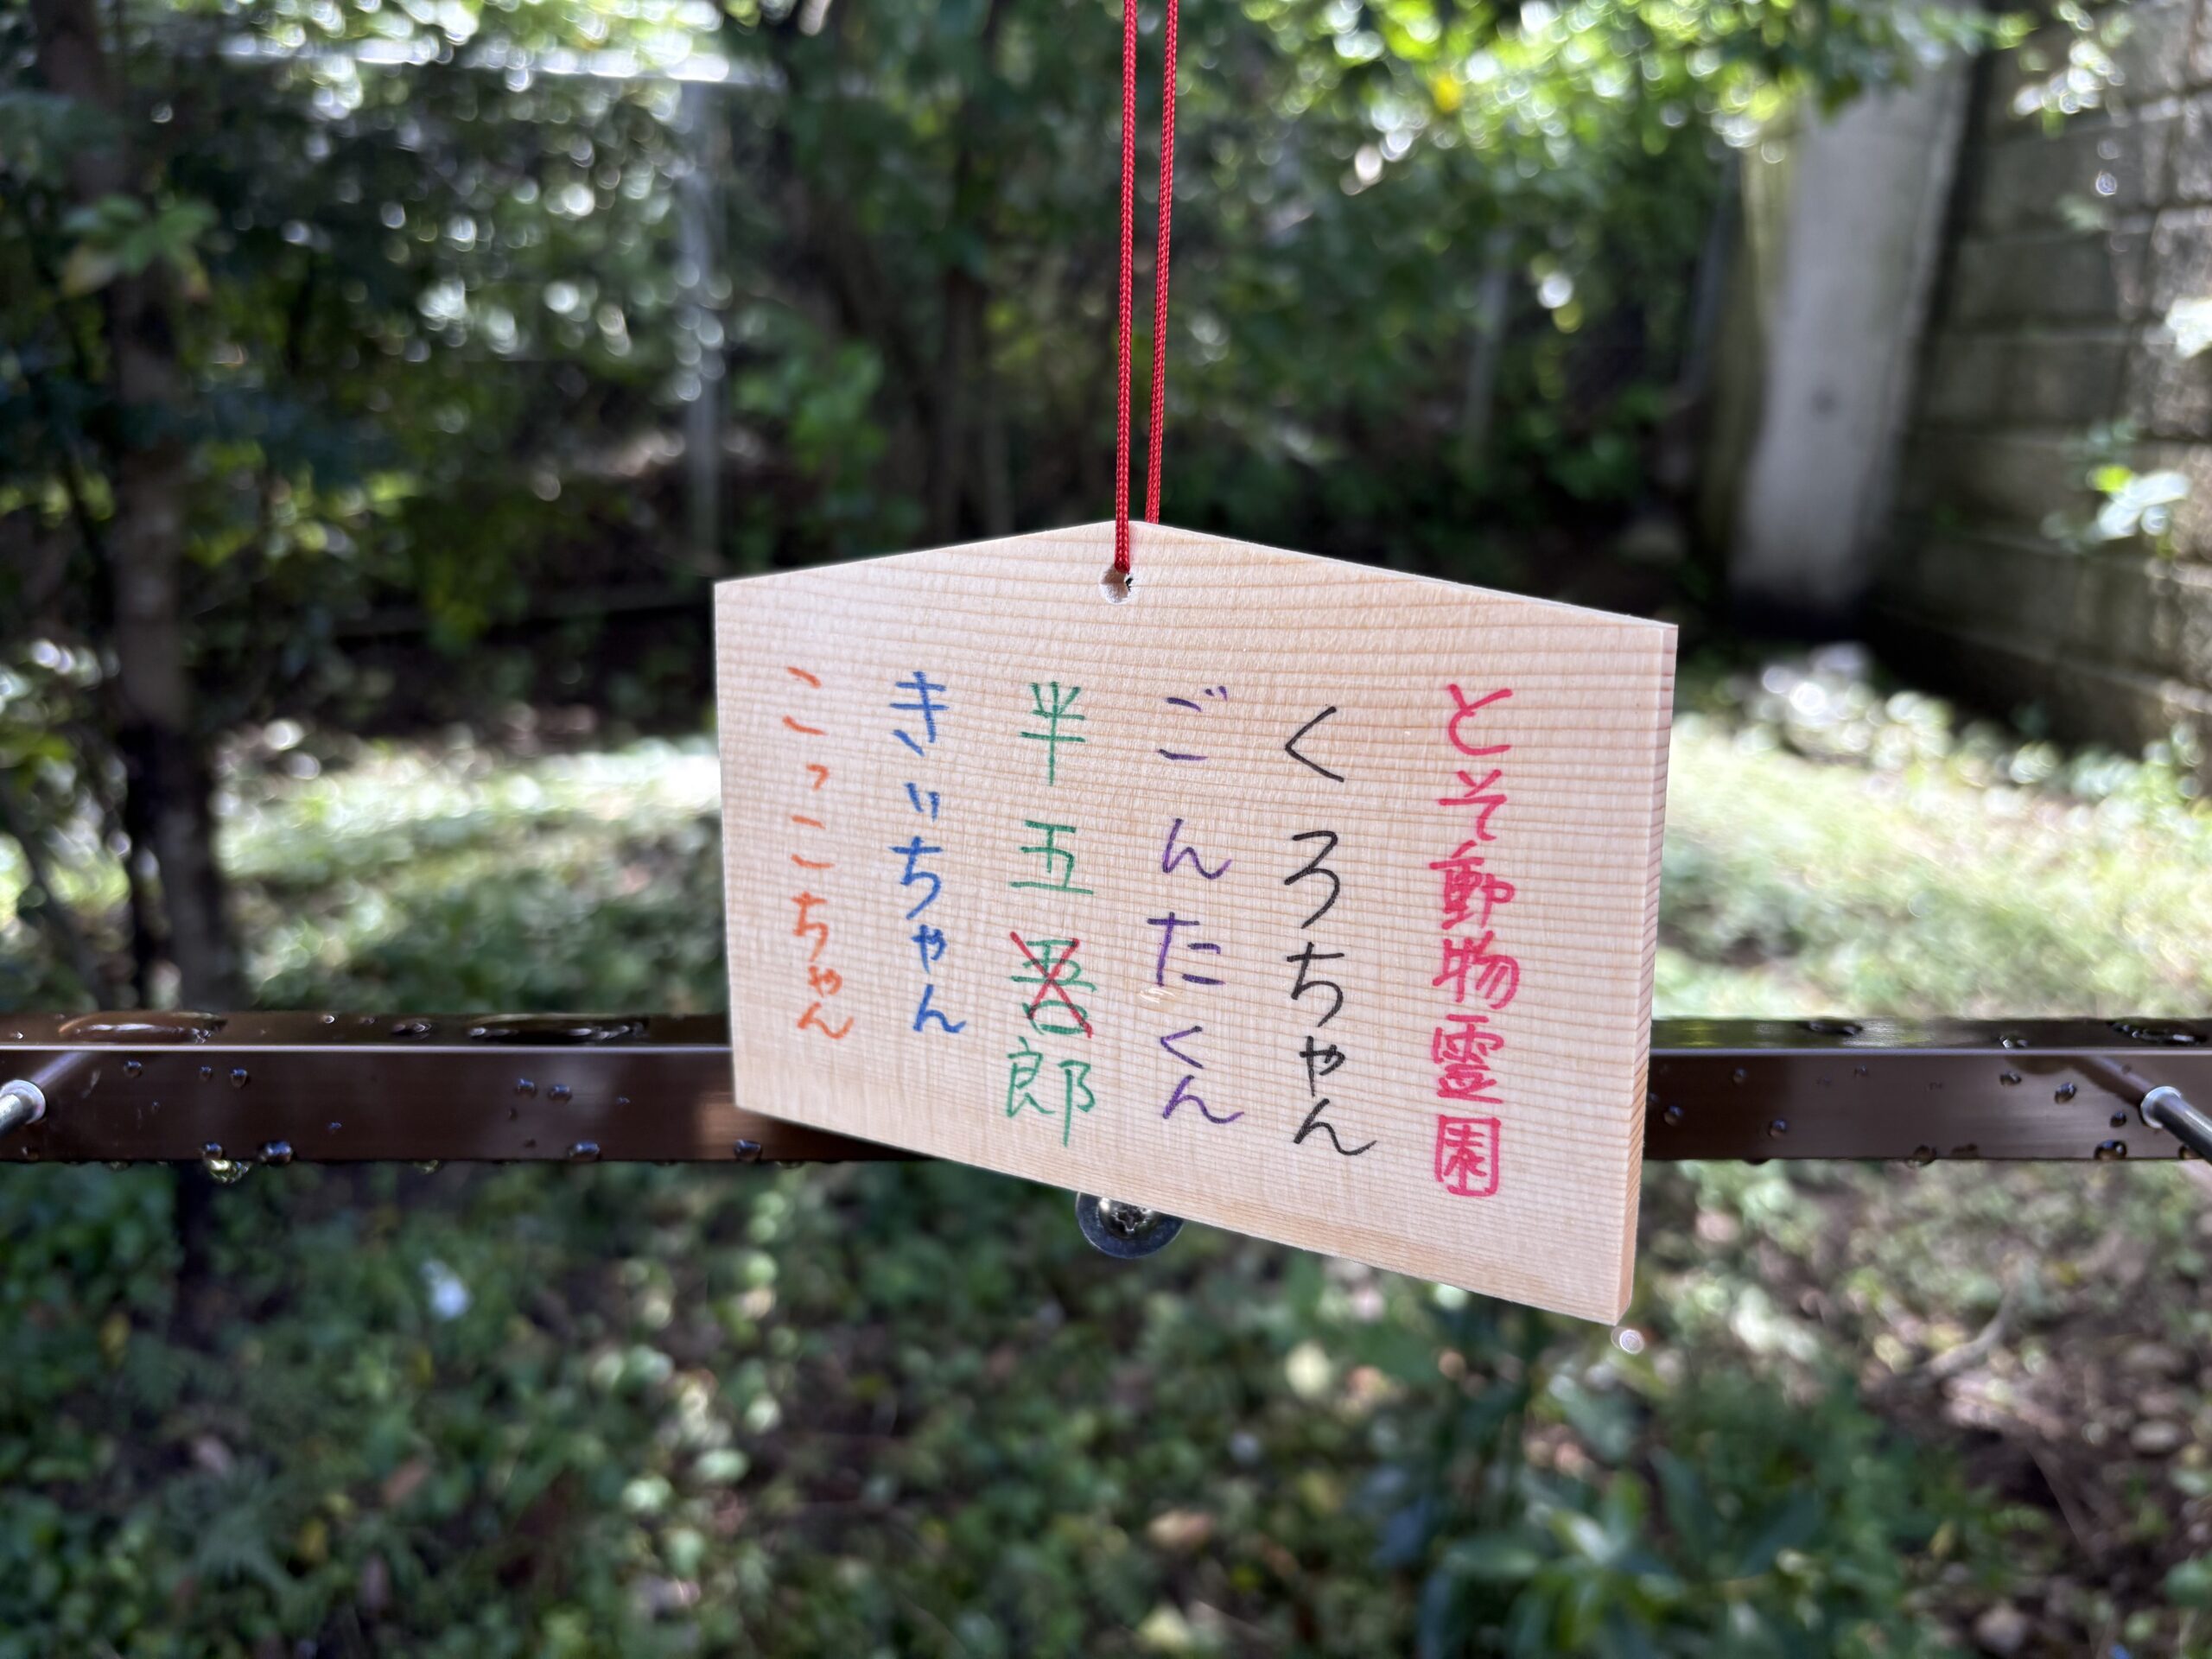 とそ動物霊園
くろちゃん
ごんたくん
半五吾郎
きぃちゃん
ここっこちゃん